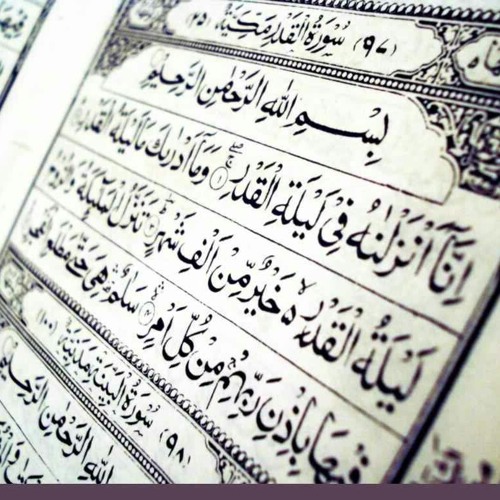 (۹۷) سُوْرَةُ الْقَدْرِ مَكِّيَّةٌ (۲۵)
بِسْمِ اللّٰهِ الرَّحْمٰنِ الرَّحِیْمِ
اِنَّاۤ اَنْزَلْنٰهُ فِیْ لَیْلَةِ الْقَدْرِ ۚۖ۝۱ وَ مَاۤ اَدْرٰىكَ مَا لَیْلَةُ الْقَدْرِ
لَیْلَةُ الْقَدْرِ ۙ۬ خَیْرٌ مِّنْ اَلْفِ شَهْرٍ ۝ؕ تَنَزَّلُ الْمَلٰٓىِٕكَةُ وَ الرُّوْحُ
فِیْهَا بِاِذْنِ رَبِّهِمْ ۚ مِنْ كُلِّ اَمْرٍ ۝ۙ سَلٰمٌ ۛ۫ هِیَ حَتّٰى مَطْلَعِ الْفَجْرِ
(۹۸) سُوْرَةُ الْبَیِّنَةِ مَدَنِیَّةٌ (۱۰۰)
اللّٰهِ الرَّحْمٰنِ الرَّحِیْمِ